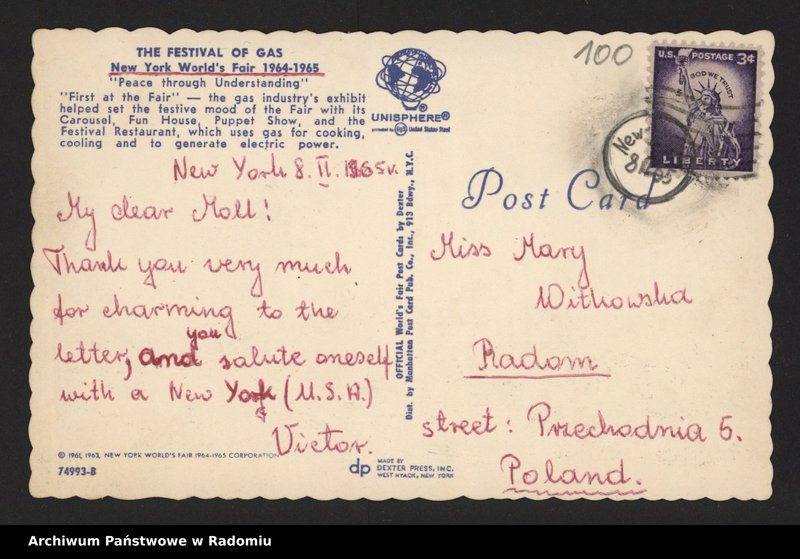 THE FESTIVAL OF GAS
New York World's Fair 1964-1965
"Peace through Understanding"
"First at the Fair" — the gas industry's exhibit
helped set the festive mood of the Fair with its
Carousel, Fun House, Puppet Show, and the
Festival Restaurant, which uses gas for cooking,
cooling and to generate electric power.
UNISPHERE®
presented by USS United States Steel
100
U.S. POSTAGE 3¢
IN GOD WE TRUST
LIBERTY
New
8 II 65
New York 8. II. 1965 v.
My dear Moll!
Thank you very much
for charming to the
letter, and you salute oneself
with a New York (U.S.A.)
Victor.
OFFICIAL World's Fair Post Cards by Dexter
Dist. by Manhattan Post Card Pub. Co., Inc., 913 Bdwy., N.Y.C.
Post Card
Miss Mary
Witkowska
Radom
street: Przechodnia 5.
Poland.
© 1961, 1963, NEW YORK WORLD'S FAIR 1964-1965 CORPORATION
74993-B
dp MADE BY
DEXTER PRESS, INC.
WEST NYACK, NEW YORK
Archiwum Państwowe w Radomiu